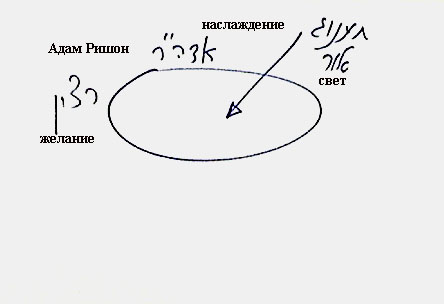 наслаждение
תענוג
Адам Ришон
אדה"ר
אור
свет
רצון
желание